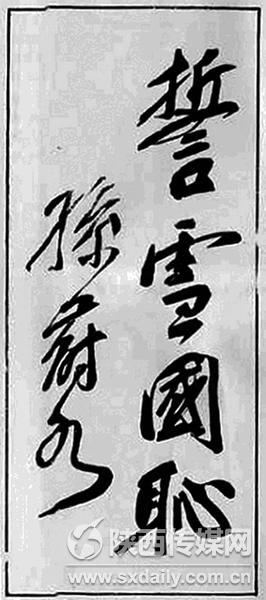 誓雪國恥
孫蔚如
陕西传媒网
www.sxdaily.com.cn